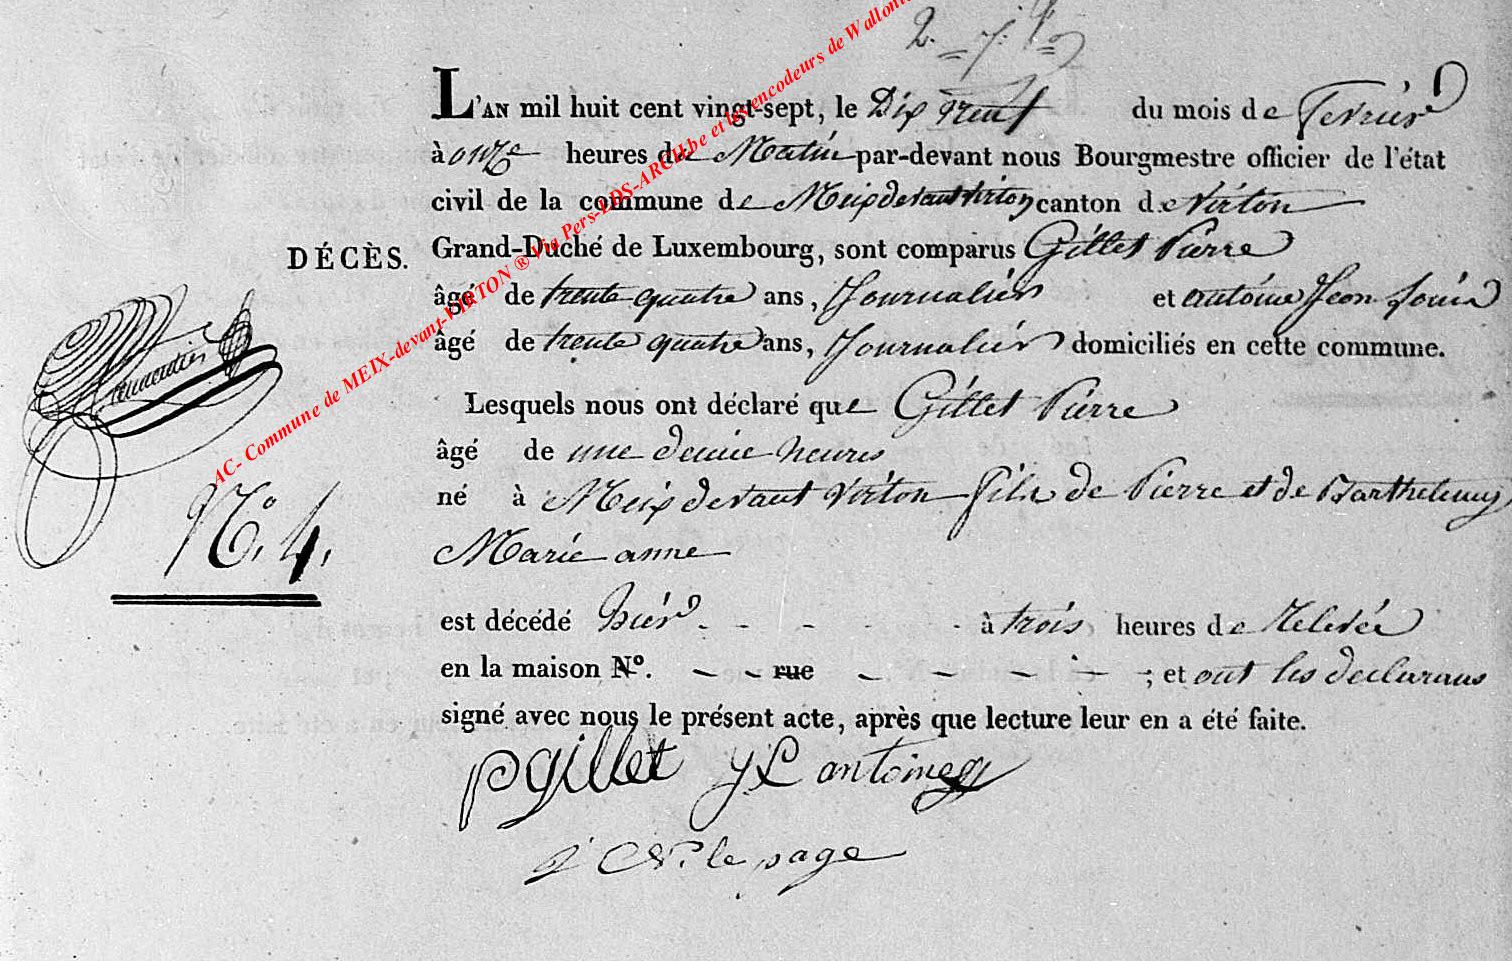 L'AN mil huit cent vingt-sept, le Dix neuf du mois de Fevrier
à onze heures du Matin par-devant nous Bourgmestre officier de l'état
civil de la commune de Meix devant Virton canton de Virton
DÉCÈS. Grand-Duché de Luxembourg, sont comparus Gillet Pierre
âgé de trente quatre ans, Journalier et antoine Jean Louis
âgé de trente quatre ans, Journalier domiciliés en cette commune.
Lesquels nous ont déclaré que Gillet Pierre
âgé de une demie heures
né à Meix devant Virton fils de Pierre et de Barthelemy
N.º 4.
Marie anne
est décédé hier à trois heures de Relevée
en la maison Nº. rue ; et ont les declarans
signé avec nous le présent acte, après que lecture leur en a été faite.
pgillet JL antoine
le page
AC- Commune de MEIX-devant-VIRTON ® Via Pers-LDS-ARCH.be et les encodeurs de Wallonie